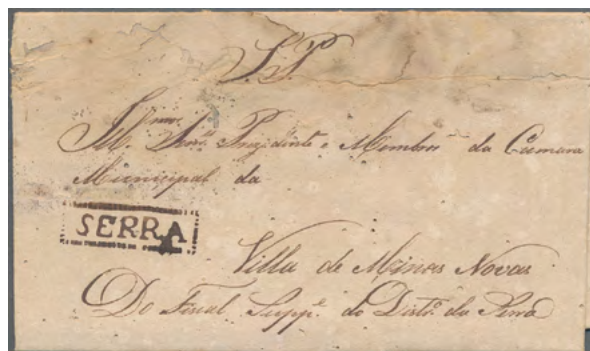 S. P.
Ill.mos Senr.s Prezidente e Membros da Camara
Municipal da
SERRA
Villa de Minas Novas
Do Fiscal Supp.e do Distr.o da Serra